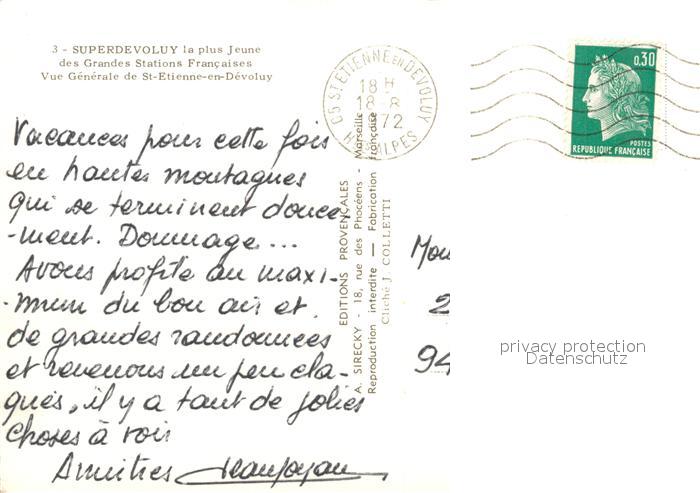 3 - SUPERDEVOLUY la plus Jeune
des Grandes Stations Françaises
Vue Générale de St-Etienne-en-Dévoluy
05 ST ETIENNE EN DEVOLUY
18 H
18 - 8
1972
HTES ALPES
0,30
POSTES
REPUBLIQUE FRANÇAISE
Vacances pour cette fois
en hautes montagnes
qui se terminent douce
-ment. Dommage...
Avons profité au maxi-
-mum du bon air et
de grandes randonnées
et revenons un peu cla-
qués, il y a tant de jolies
choses à voir
Amitiés
EDITIONS PROVENÇALES
A. SIRECKY - 18, rue des Phocéens - Marseille
Reproduction interdite — Fabrication française
Cliché J. COLLETTI
Mou
2
94
privacy protection
Datenschutz